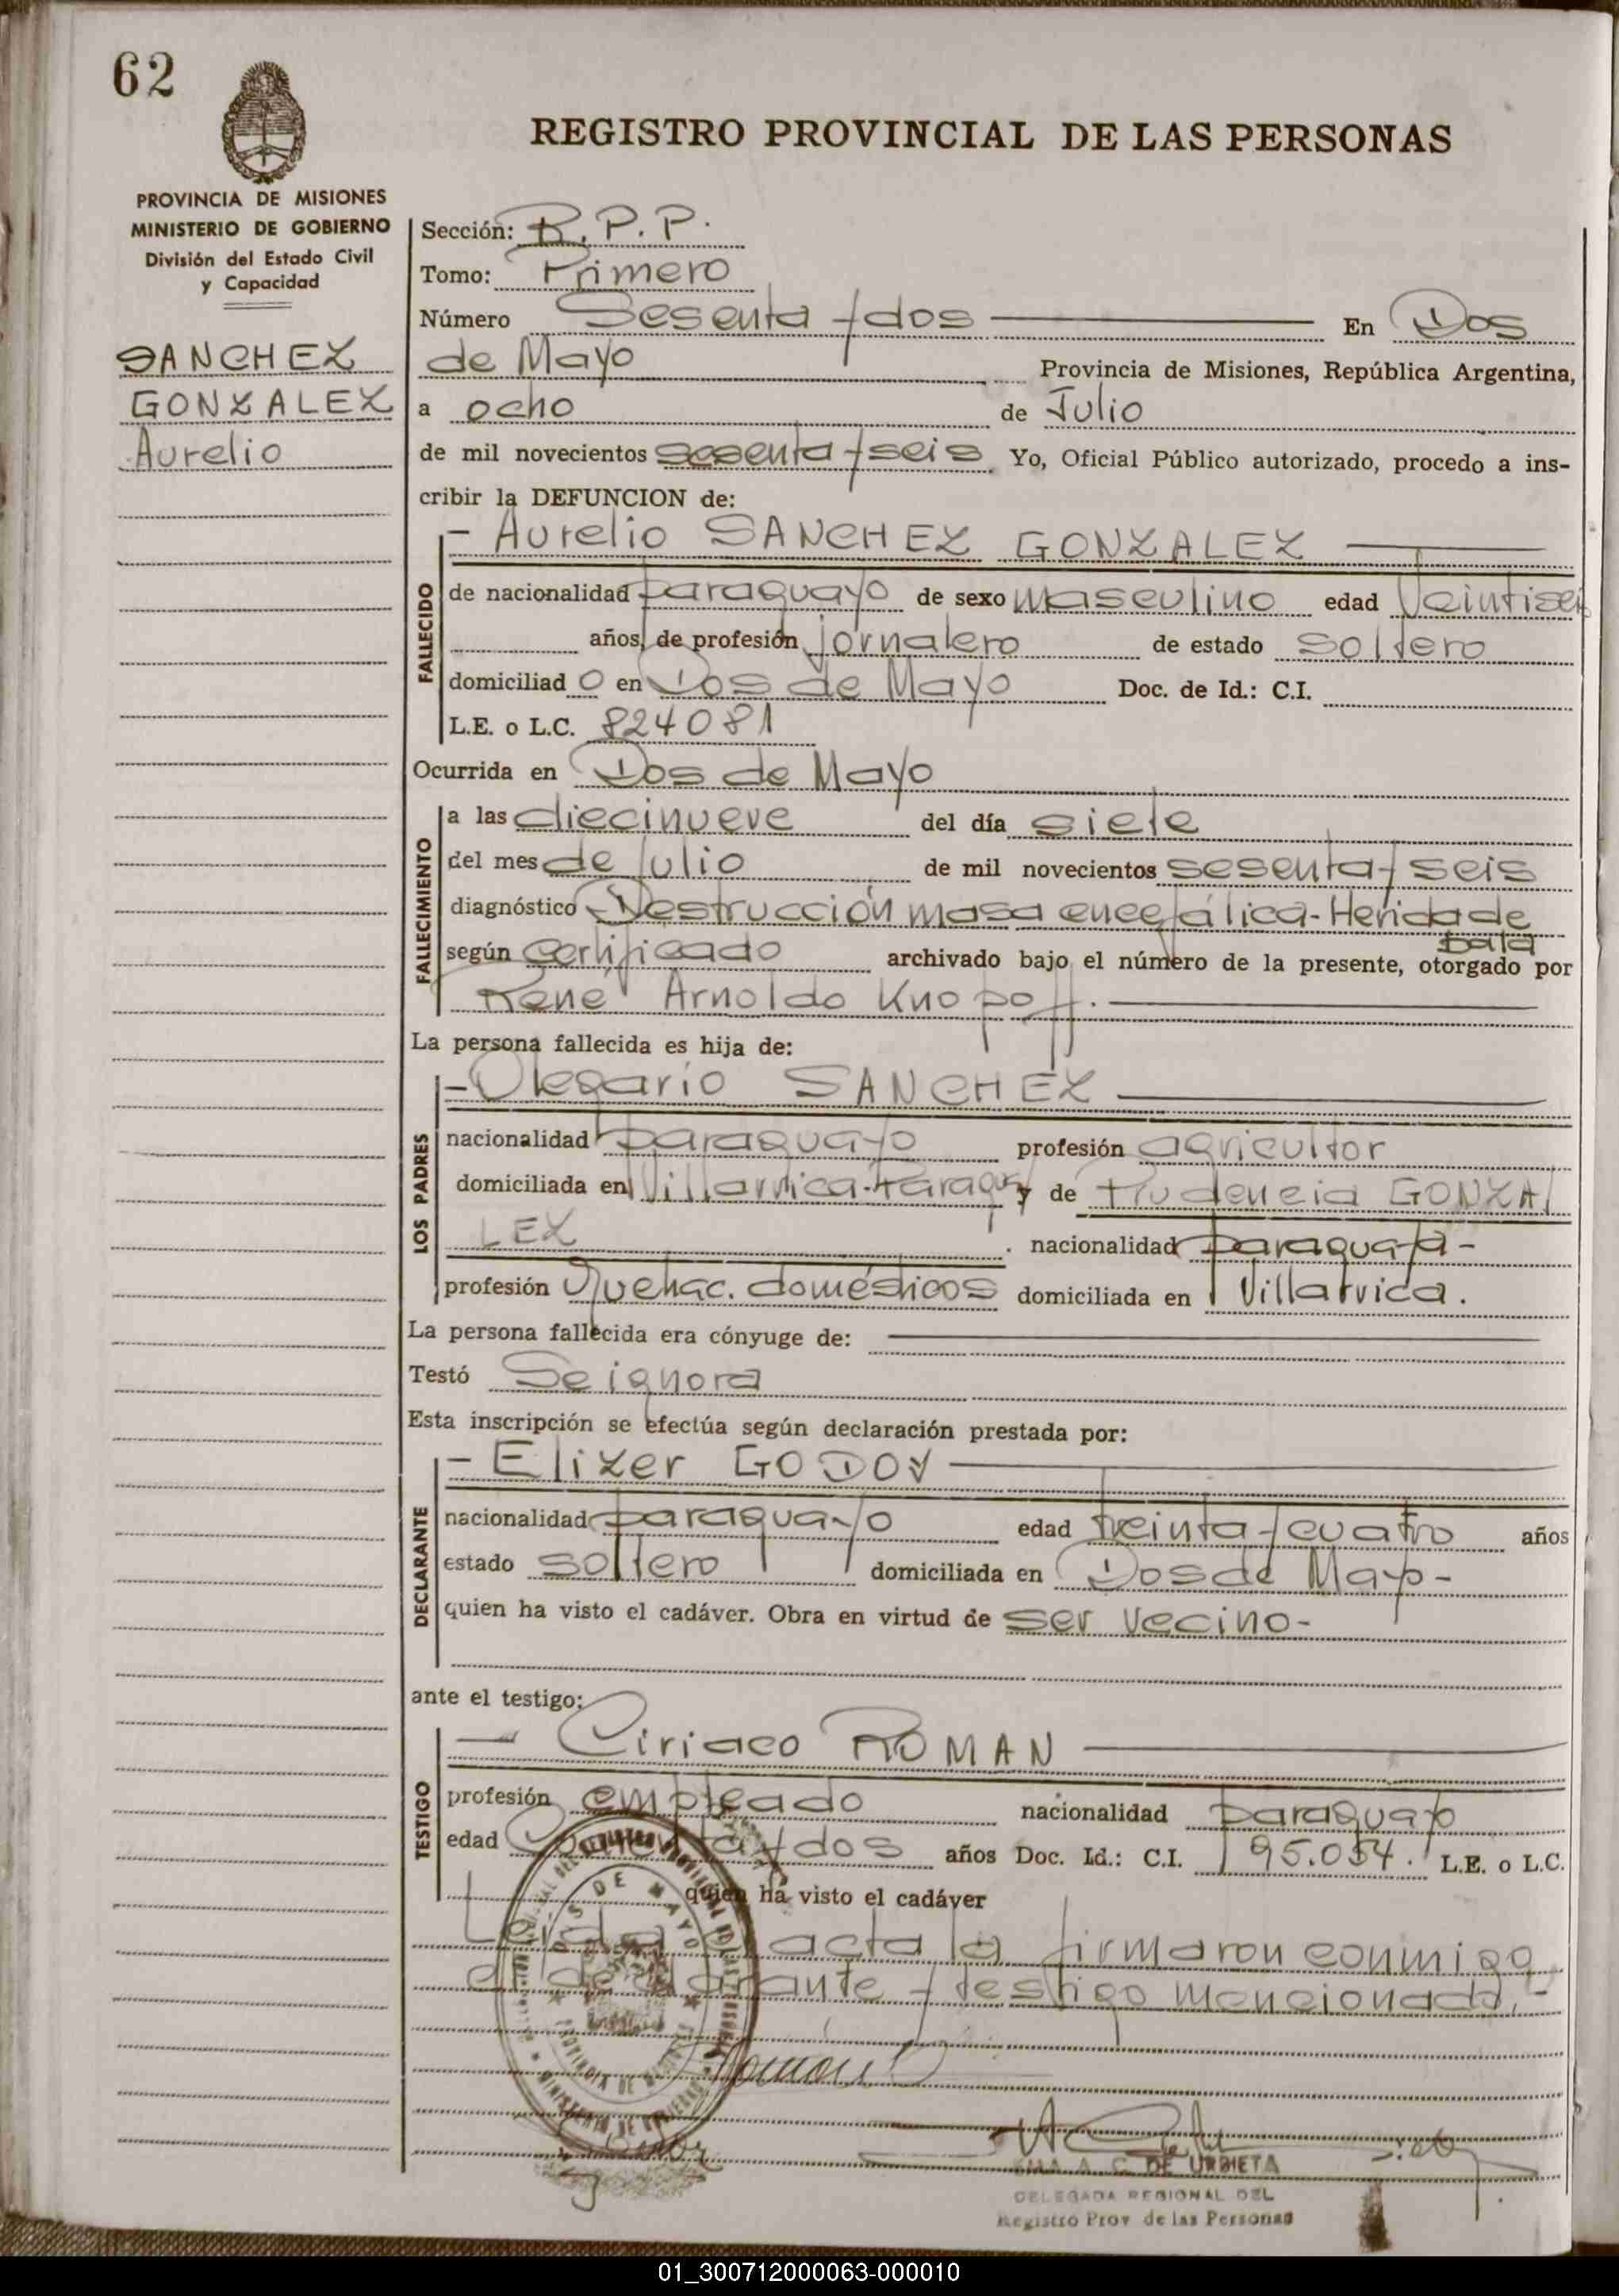 62
REGISTRO PROVINCIAL DE LAS PERSONAS
PROVINCIA DE MISIONES
MINISTERIO DE GOBIERNO
División del Estado Civil
y Capacidad
SANCHEZ
GONZALEZ
Aurelio
Sección: R.P.P.
Tomo: Primero
Número Sesenta y dos En Dos
de Mayo Provincia de Misiones, República Argentina,
a ocho de Julio
de mil novecientos sesenta y seis Yo, Oficial Público autorizado, procedo a ins-
cribir la DEFUNCION de:
- Aurelio SANCHEZ GONZALEZ
FALLECIDO
de nacionalidad paraguayo de sexo masculino edad Veintiseis
años, de profesión jornalero de estado soltero
domiciliad o en Dos de Mayo Doc. de Id.: C.I.
L.E. o L.C. 824081
Ocurrida en Dos de Mayo
FALLECIMIENTO
a las diecinueve del día siete
del mes de Julio de mil novecientos sesenta y seis
diagnóstico Destrucción masa encefálica - Herida de
bala
según certificado archivado bajo el número de la presente, otorgado por
René Arnoldo Knopoff.
La persona fallecida es hija de:
LOS PADRES
- Olegario SANCHEZ
nacionalidad paraguayo profesión agricultor
domiciliada en Villarrica - Paraguay y de Prudencia GONZA
LEZ . nacionalidad paraguaya -
profesión Quehac. domésticos domiciliada en Villarrica.
La persona fallecida era cónyuge de:
Testó Se ignora
Esta inscripción se efectúa según declaración prestada por:
DECLARANTE
- Elizer GODOY
nacionalidad paraguayo edad treinta y cuatro años
estado soltero domiciliada en Dos de Mayo -
quien ha visto el cadáver. Obra en virtud de ser vecino -
ante el testigo:
TESTIGO
- Ciriaco ROMAN
profesión empleado nacionalidad paraguayo
edad y dos años Doc. Id.: C.I. 195.054. L.E. o L.C.
quien ha visto el cadáver
Leída el acta la firmaron conmigo
el declarante y testigo mencionado. -
A. C. DE URBIETA
DELEGADA REGIONAL DEL
Registro Prov de las Personas
01_300712000063-000010